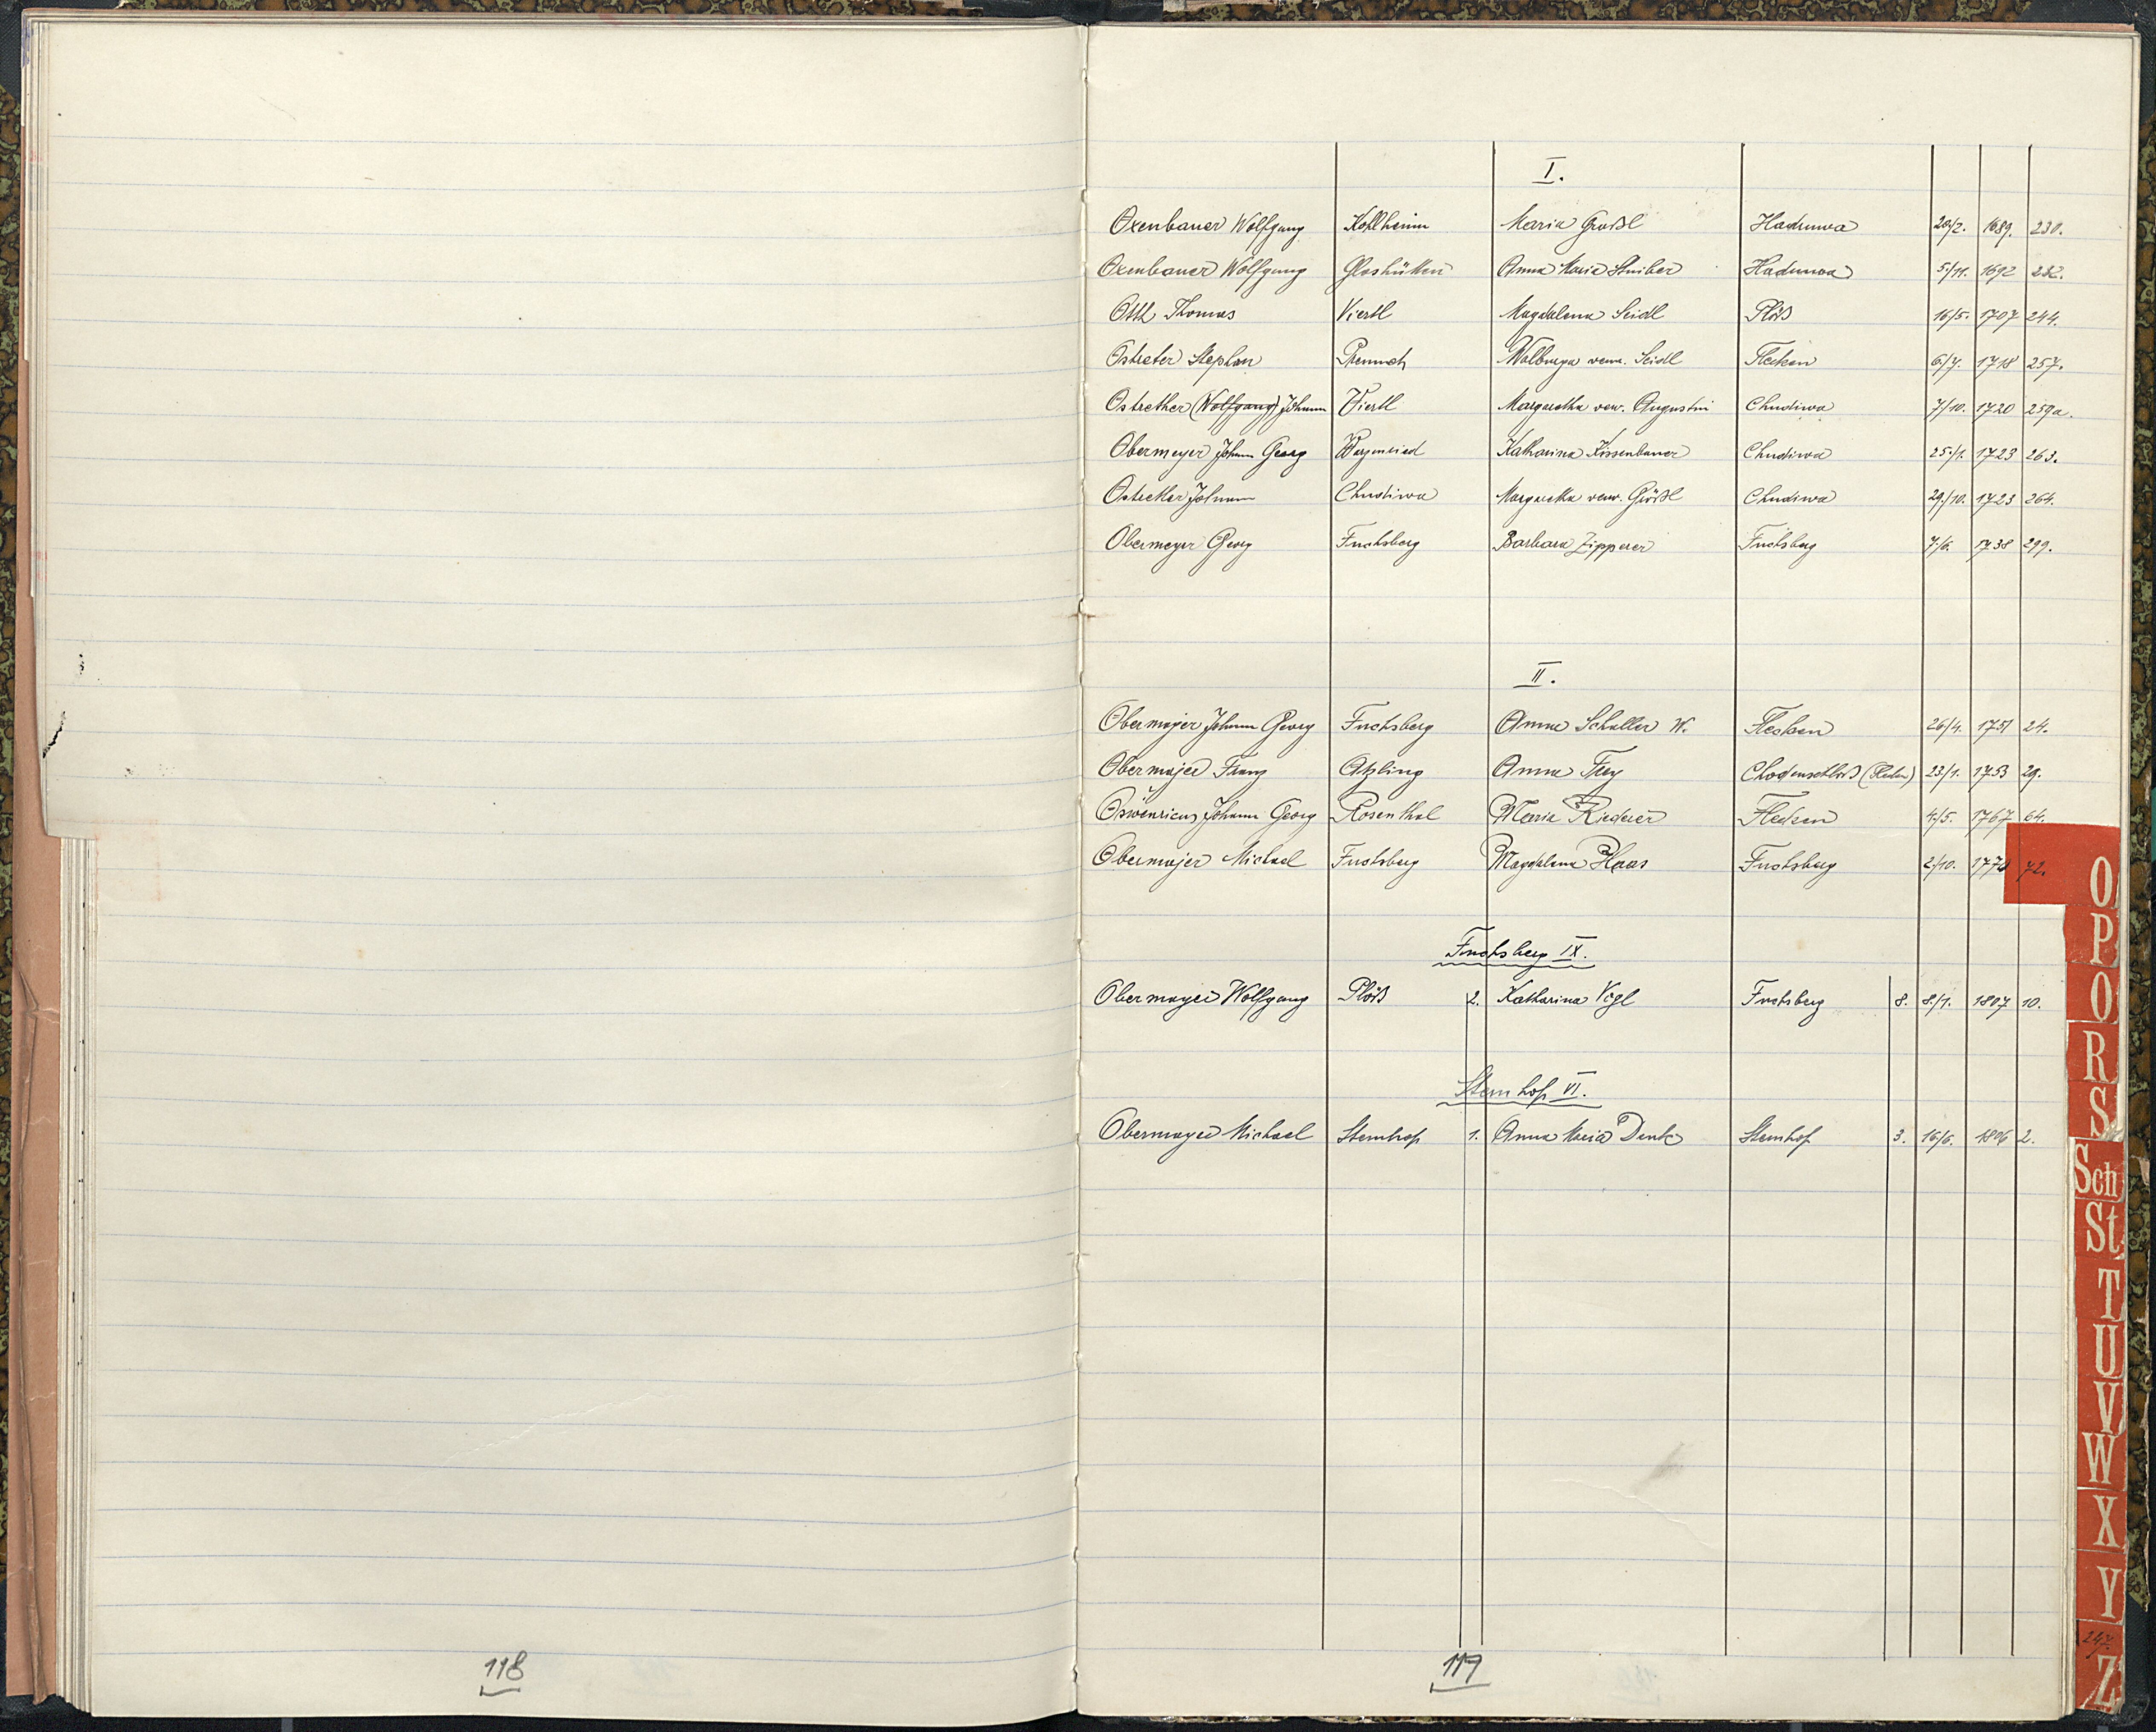 I.
Oxenbauer Wolfgang Kohlheim Maria Großl Hadruwa 20/2. 1689. 230.
Oxenbauer Wolfgang Glashütten Anna Maria Stuiber Hadruwa 5/11. 1692 232.
Ottl Thomas Viertl Magdalena Seidl Plöß 16/5. 1707 244.
Ostreter Stephan Prennet Walburga verw. Seidl Flecken 6/7. 1718 257.
Ostrether (Wolfgang) Johann Viertl Margaretha verw. Augustin Chudiwa 7/10. 1720 259a.
Obermeyer Johann Georg Katharina Kissenbauer Chudiwa 25/1. 1723 263.
Ostrether Johann Chudiwa Margaretha verw. Größl Chudiwa 29./10. 1723 264.
Obermeyer Georg Fuchsberg Barbara Zipperer Fuchsberg 7/6. 1738 299.
II.
Obermayer Johann Georg Fuchsberg Anna Schaller W. Flecken 26/4. 1751 24.
Obermajer Franz Atzling Anna Frey Chodenschloß (Flecken) 23/1. 1753 29.
Johann Georg Rosenthal Maria Riederer Flecken 4/5. 1767 64.
Obermajer Michael Fuchsberg Magdalena Haas Fuchsberg 2/10. 1770 72.
Fuchsberg IX.
Obermayer Wolfgang Plöß 2. Katharina Vogl Fuchsberg 8. 8/1. 1807 10.
Sternhof VI.
Obermayer Michael Sternhof 1. Anna Maria Denk Sternhof 3. 16/6. 1806 2.
118
119
O
P
Q
R
S
Sch
St
T
U
V
W
X
Y
247.
Z